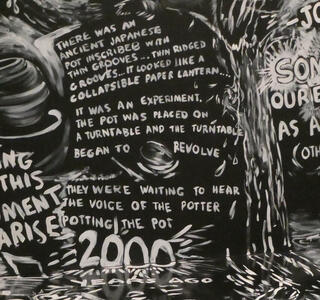 THERE WAS AN
ANCIENT JAPANESE
POT INSCRIBED WITH
THIN GROOVES... THIN RIDGED
GROOVES... IT LOOKED LIKE A
COLLAPSIBLE PAPER LANTERN...
IT WAS AN EXPERIMENT,
THE POT WAS PLACED ON
A TURNTABLE AND THE TURNTABLE
BEGAN TO REVOLVE
THEY WERE WAITING TO HEAR
THE VOICE OF THE POTTER
POTTING THE POT
2000
YEARS AGO
NG
THIS
UMENT
ARISE
-JO
SON
OUR E
AS A
(OTH